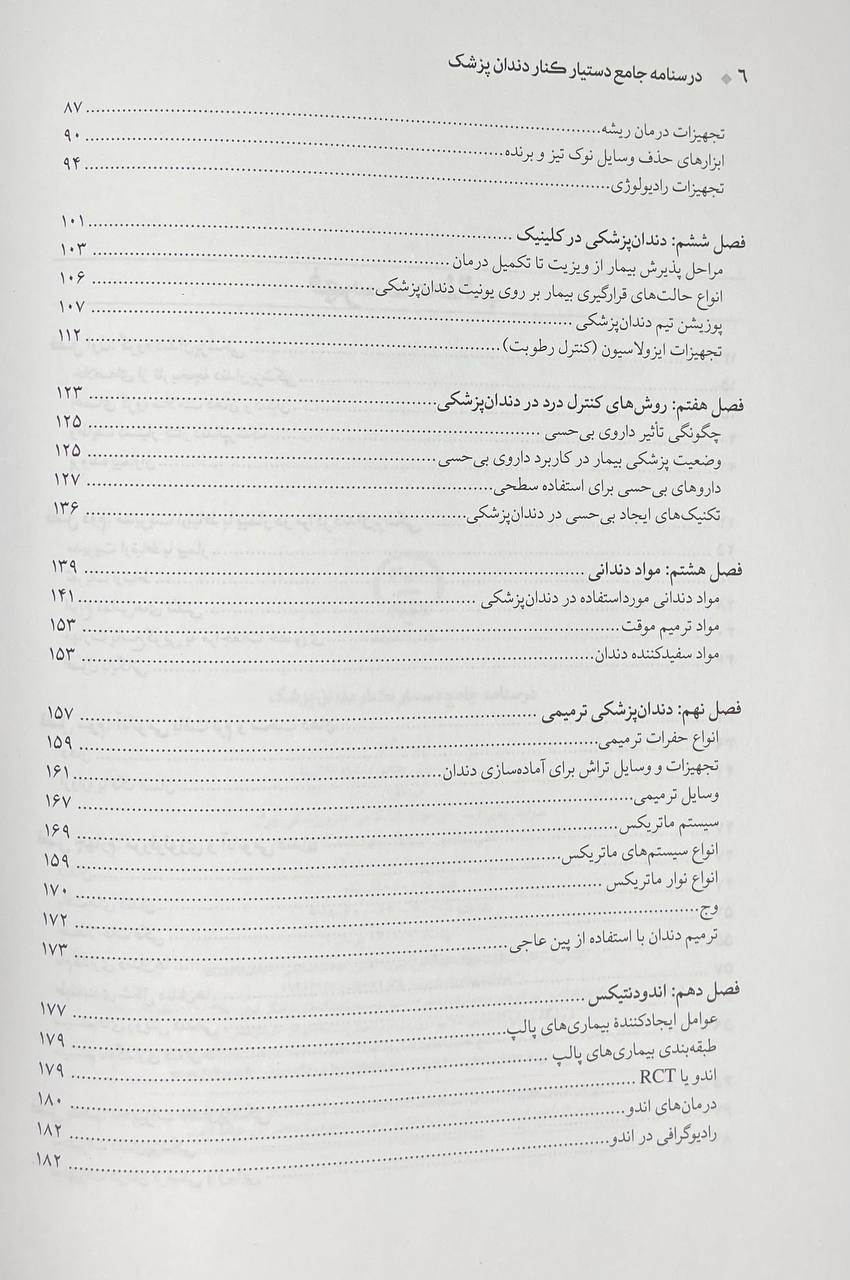 ۶ ◆ درسنامه جامع دستیار کنار دندان پزشک
تجهیزات درمان ریشه ۸۷
ابزارهای حذف وسایل نوک تیز و برنده ۹۰
تجهیزات رادیولوژی ۹۴
فصل ششم: دندان‌پزشکی در کلینیک ۱۰۱
مراحل پذیرش بیمار از ویزیت تا تکمیل درمان ۱۰۳
انواع حالت‌های قرارگیری بیمار بر روی یونیت دندان‌پزشکی ۱۰۶
پوزیشن تیم دندان‌پزشکی ۱۰۷
تجهیزات ایزولاسیون (کنترل رطوبت) ۱۱۲
فصل هفتم: روش‌های کنترل درد در دندان‌پزشکی ۱۲۳
چگونگی تأثیر داروی بی‌حسی ۱۲۵
وضعیت پزشکی بیمار در کاربرد داروی بی‌حسی ۱۲۵
داروهای بی‌حسی برای استفاده سطحی ۱۲۷
تکنیک‌های ایجاد بی‌حسی در دندان‌پزشکی ۱۳۶
فصل هشتم: مواد دندانی ۱۳۹
مواد دندانی مورداستفاده در دندان‌پزشکی ۱۴۱
مواد ترمیم موقت ۱۵۳
مواد سفیدکننده دندان ۱۵۳
فصل نهم: دندان‌پزشکی ترمیمی ۱۵۷
انواع حفرات ترمیمی ۱۵۹
تجهیزات و وسایل تراش برای آماده‌سازی دندان ۱۶۱
وسایل ترمیمی ۱۶۷
سیستم ماتریکس ۱۶۹
انواع سیستم‌های ماتریکس ۱۵۹
انواع نوار ماتریکس ۱۷۰
وج ۱۷۲
ترمیم دندان با استفاده از پین عاجی ۱۷۳
فصل دهم: اندودنتیکس ۱۷۷
عوامل ایجادکنندهٔ بیماری‌های پالپ ۱۷۹
طبقه‌بندی بیماری‌های پالپ ۱۷۹
اندو یا RCT ۱۸۰
درمان‌های اندو ۱۸۲
رادیوگرافی در اندو ۱۸۲